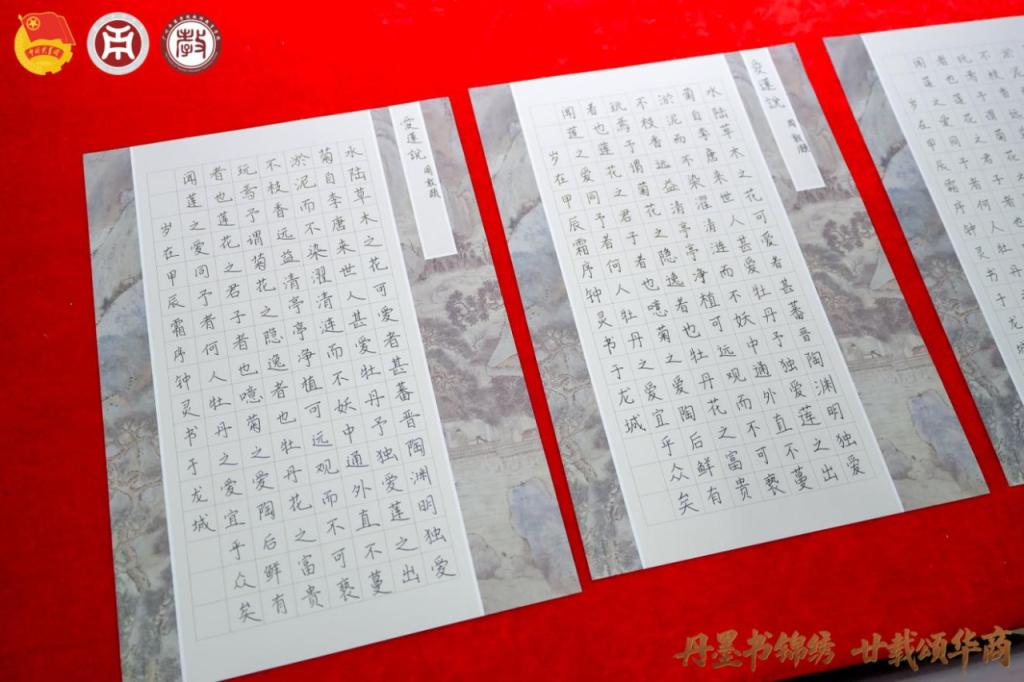 中国共青团
教
愛蓮說 周敦頤
水陆草木之花可爱者甚蕃晋陶渊明独爱
菊自李唐来世人甚爱牡丹予独爱莲之出
淤泥而不染濯清涟而不妖中通外直不蔓
不枝香远益清亭亭净植可远观而不可亵
玩焉予谓菊花之隐逸者也牡丹花之富贵
者也莲花之君子者也噫菊之爱陶后鲜有
闻莲之爱同予者何人牡丹之爱宜乎众矣
岁在甲辰霜序钟灵书于龙城
愛蓮說 周敦頤
水陆草木之花可爱者甚蕃晋陶渊明独爱
菊自李唐来世人甚爱牡丹予独爱莲之出
淤泥而不染濯清涟而不妖中通外直不蔓
不枝香远益清亭亭净植可远观而不可亵
玩焉予谓菊花之隐逸者也牡丹花之富贵
者也莲花之君子者也噫菊之爱陶后鲜有
闻莲之爱同予者何人牡丹之爱宜乎众矣
岁在甲辰霜序钟灵书于龙城
淤泥
不枝香远
玩焉予谓菊
者也莲花之君子
闻莲之爱同予者何人牡丹
岁在甲辰霜序钟灵书于龙城
丹墨书锦绣 廿载颂华商